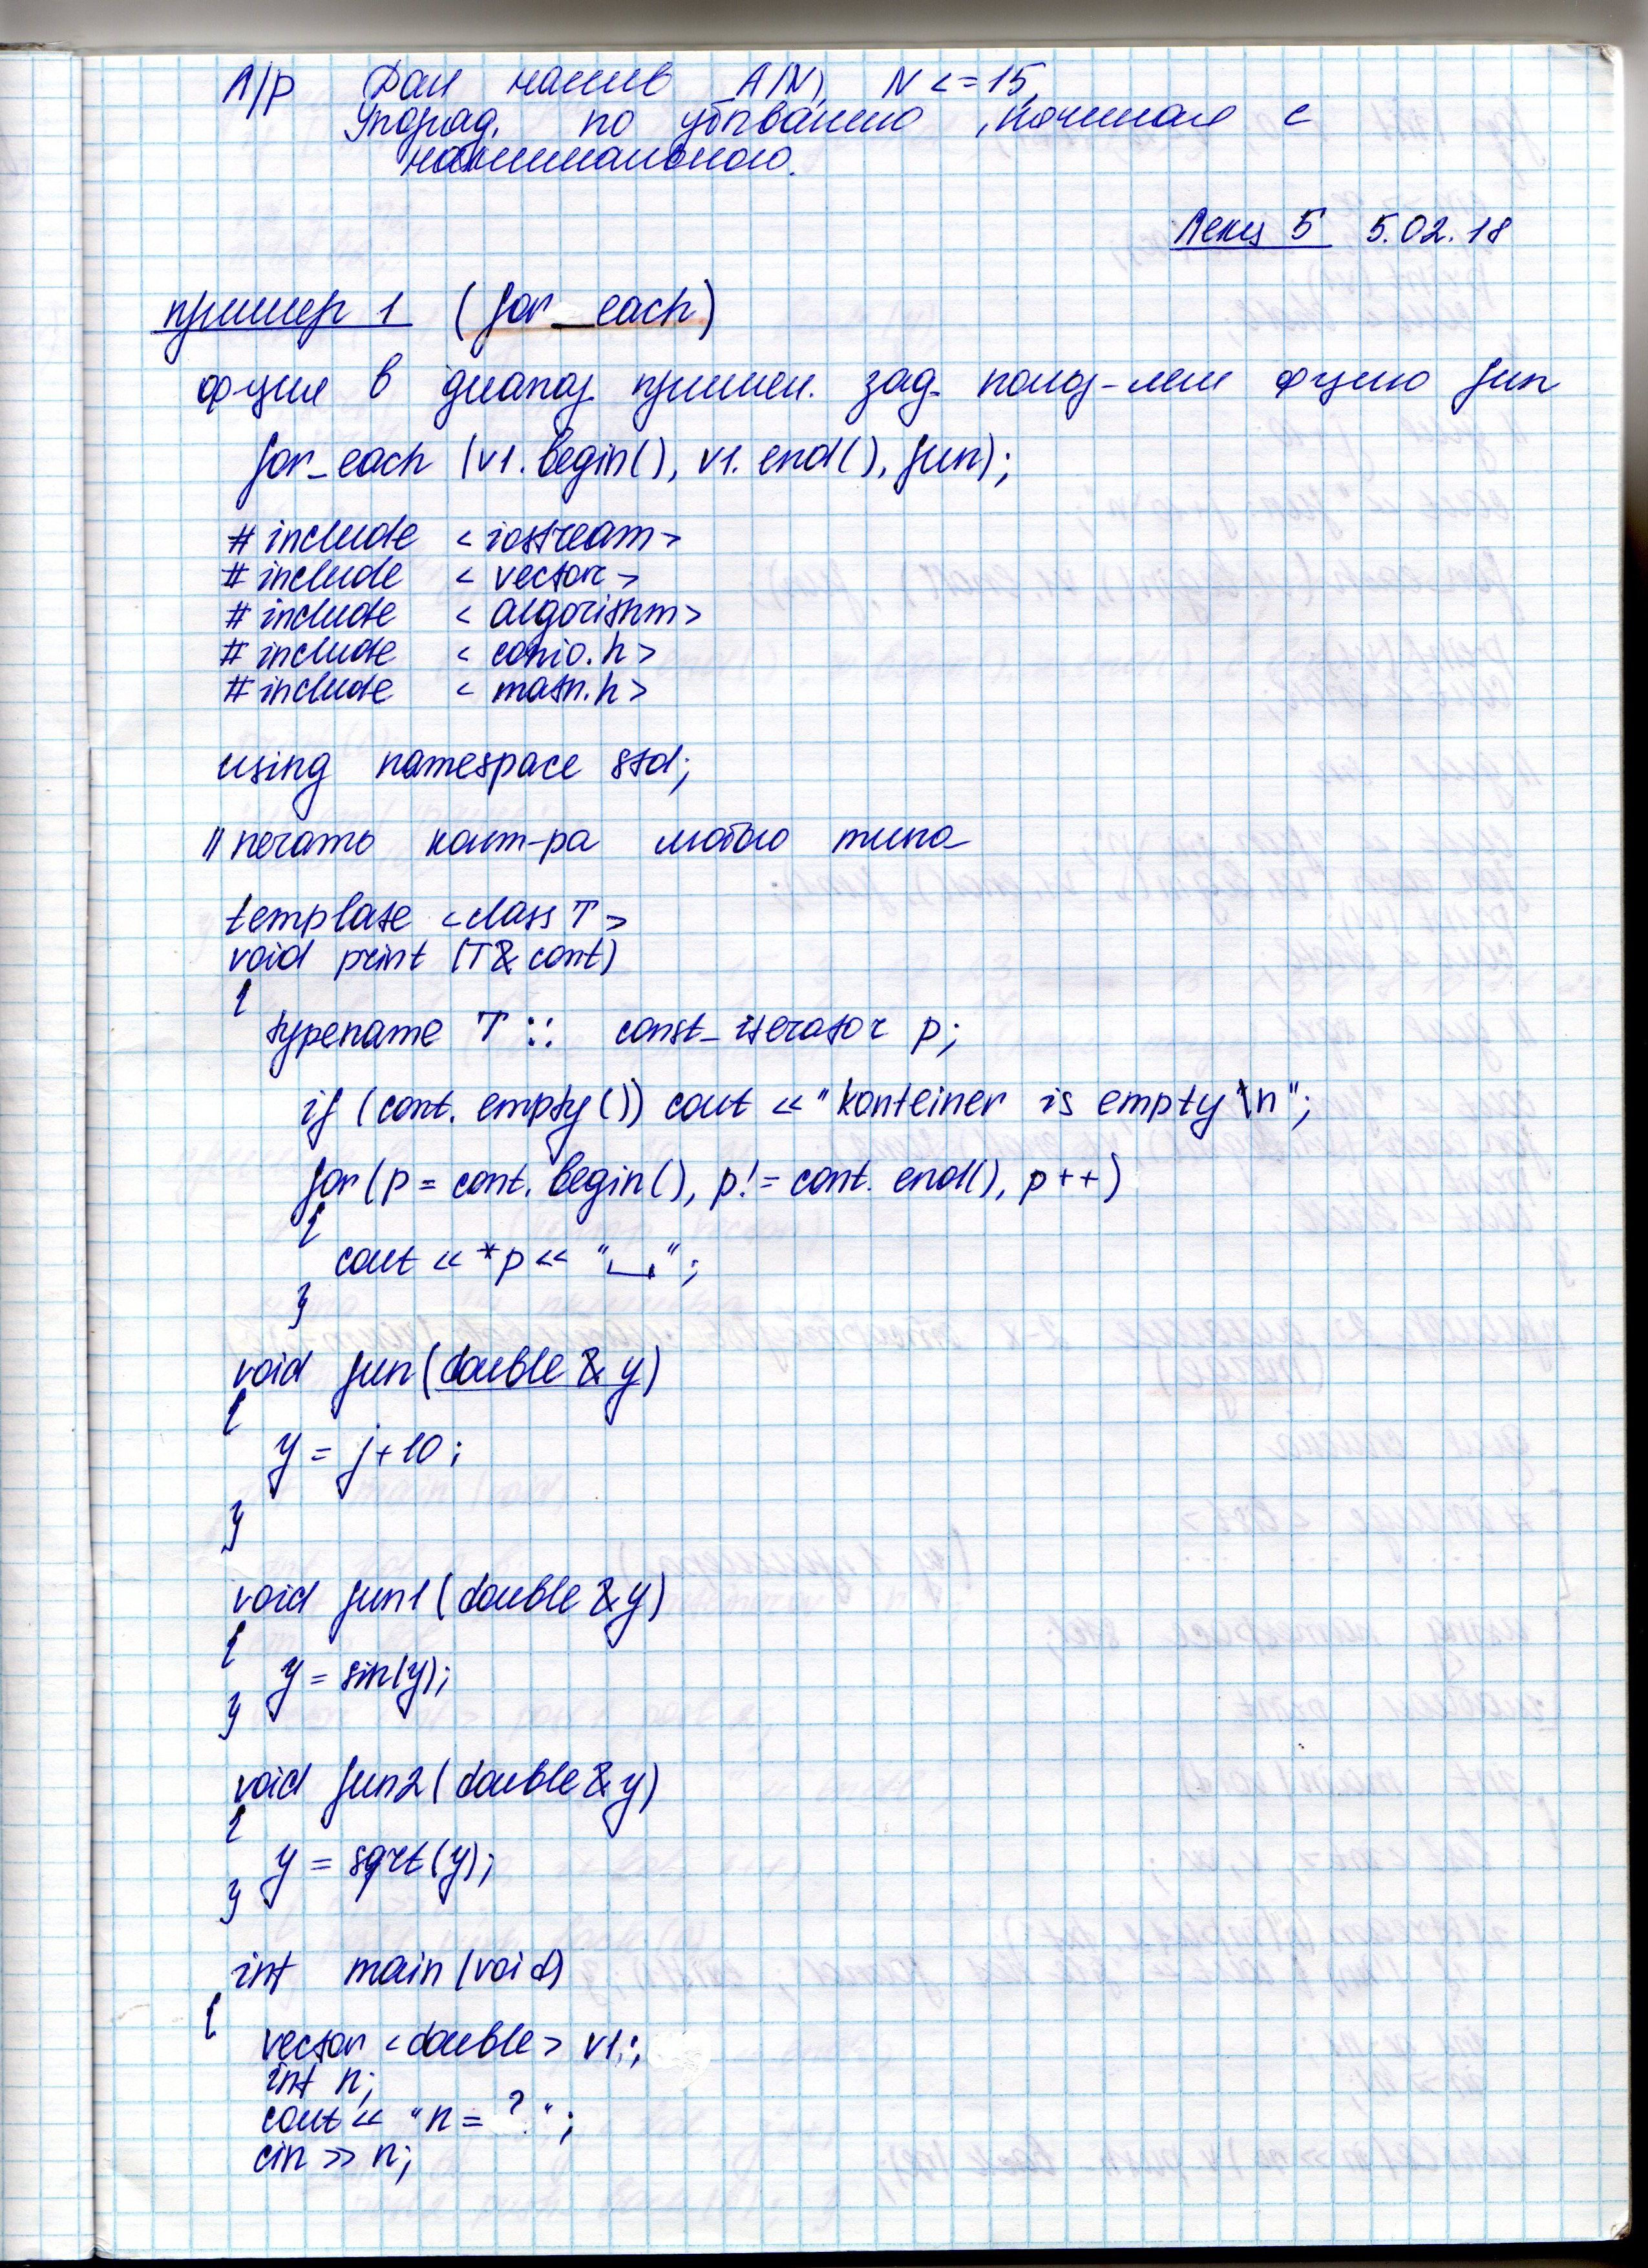 Л/р Дан массив A(N), N <= 15,
Упоряд. по убыванию, начиная с
максимального.
Лекц 5 5.02.18
пример 1 (for_each)
ф-ция в диапаз. примен. зад. польз-лем ф-цию fun
for_each (v1.begin(), v1.end(), fun);
# include <iostream>
# include <vector>
# include <algorithm>
# include <conio.h>
# include <math.h>
using namespace std;
// печать конт-ра любого типа
template <class T>
void print (T& cont)
{
typename T :: const_iterator p;
if (cont. empty()) cout << "konteiner is empty \n";
for (p = cont. begin(), p != cont. end(), p++)
{
cout << *p << "␣";
}
void fun (double & y)
{
y = j+10;
}
void fun1 (double & y)
{
y = sin(y);
}
void fun2 (double & y)
{
y = sqrt(y);
}
int main (void)
{
vector <double> v1;
int n;
cout << "n = ? ";
cin >> n;